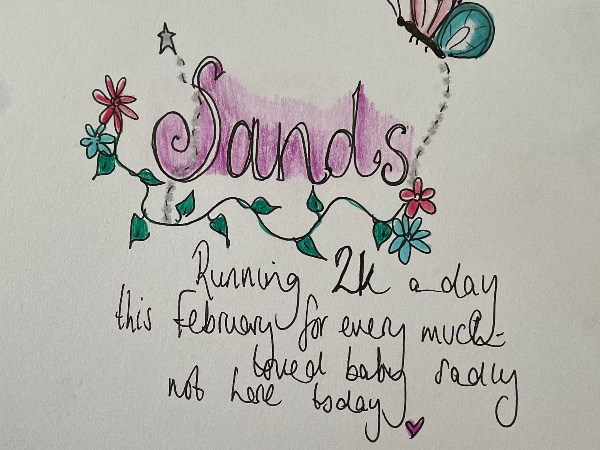 Sands
Running 2k a day
this february for every much-
loved baby sadly
not here today